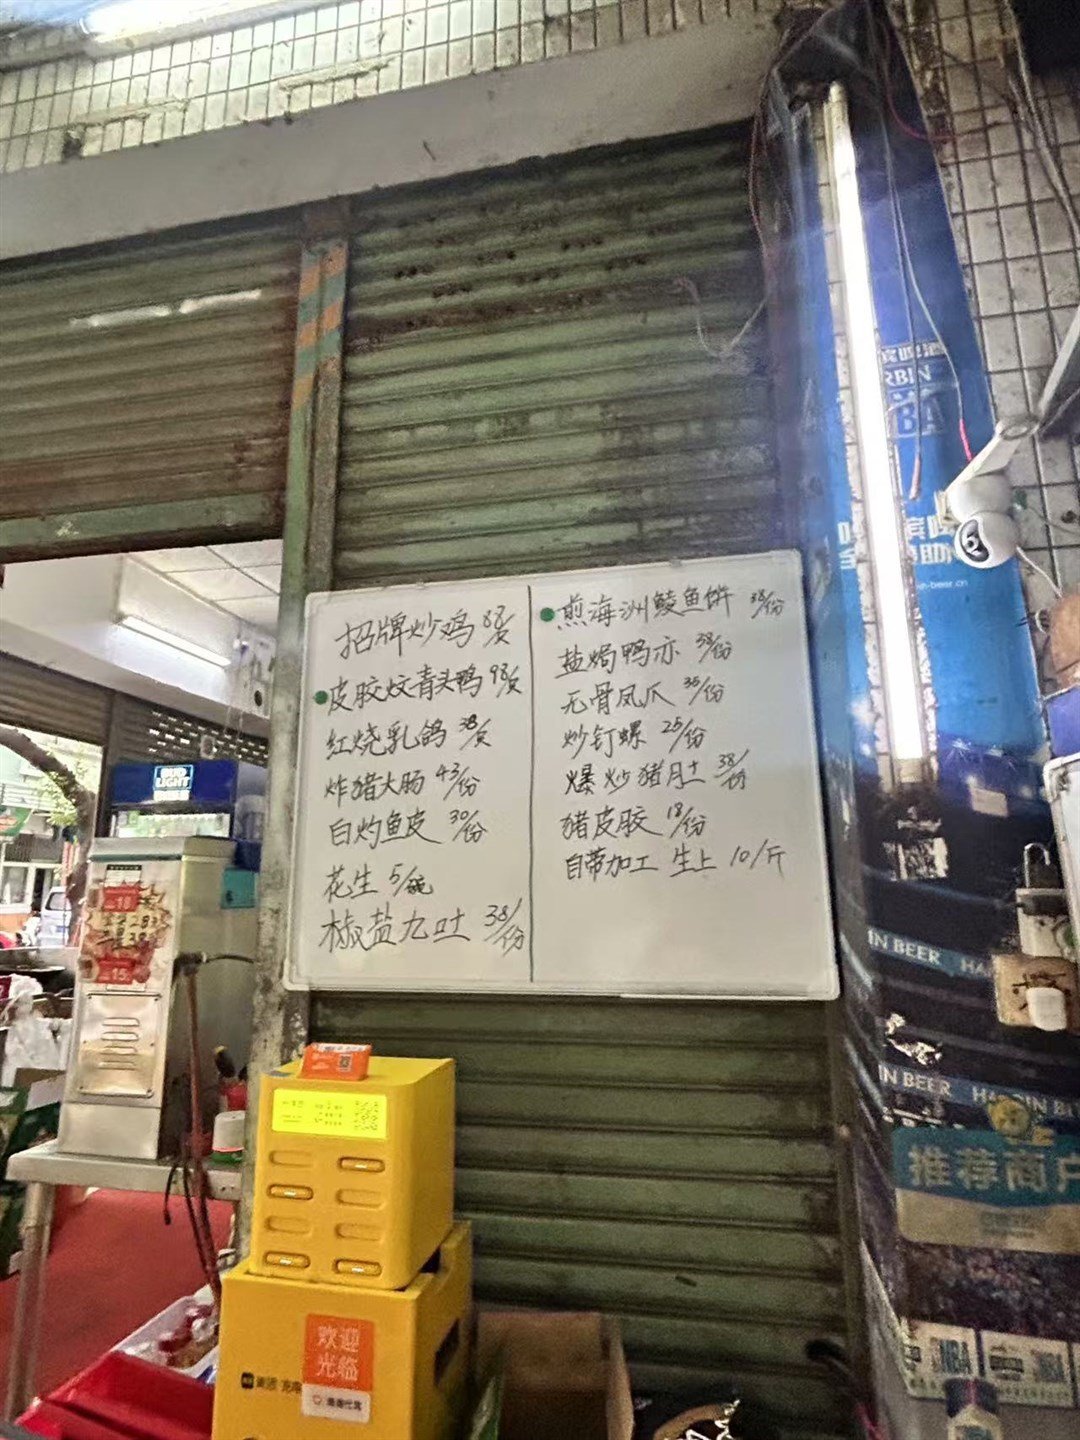 招牌炒鸡
皮胶炆青头鸭 98/只
红烧乳鸽 38/只
炸猪大肠 43/份
白灼鱼皮 30/份
花生 5/碗
椒盐九吐 38/份
煎海洲鲮鱼饼 38/份
盐焗鸭亦 38/份
无骨凤爪 36/份
炒钉螺 25/份
爆炒猪月土 38/份
猪皮胶 18/份
自带加工 生上 10/斤
BUD
LIGHT
RBIN
IN BEER
IN BEER
推荐商户
NBA
欢迎
光临